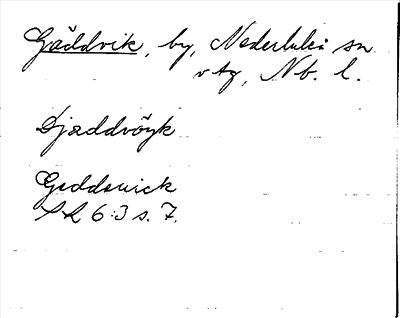 Gäddvik, by, Nederluleå sn
Nb. l.
Djäddvöyk
Geddewick
6:3 s. 7.